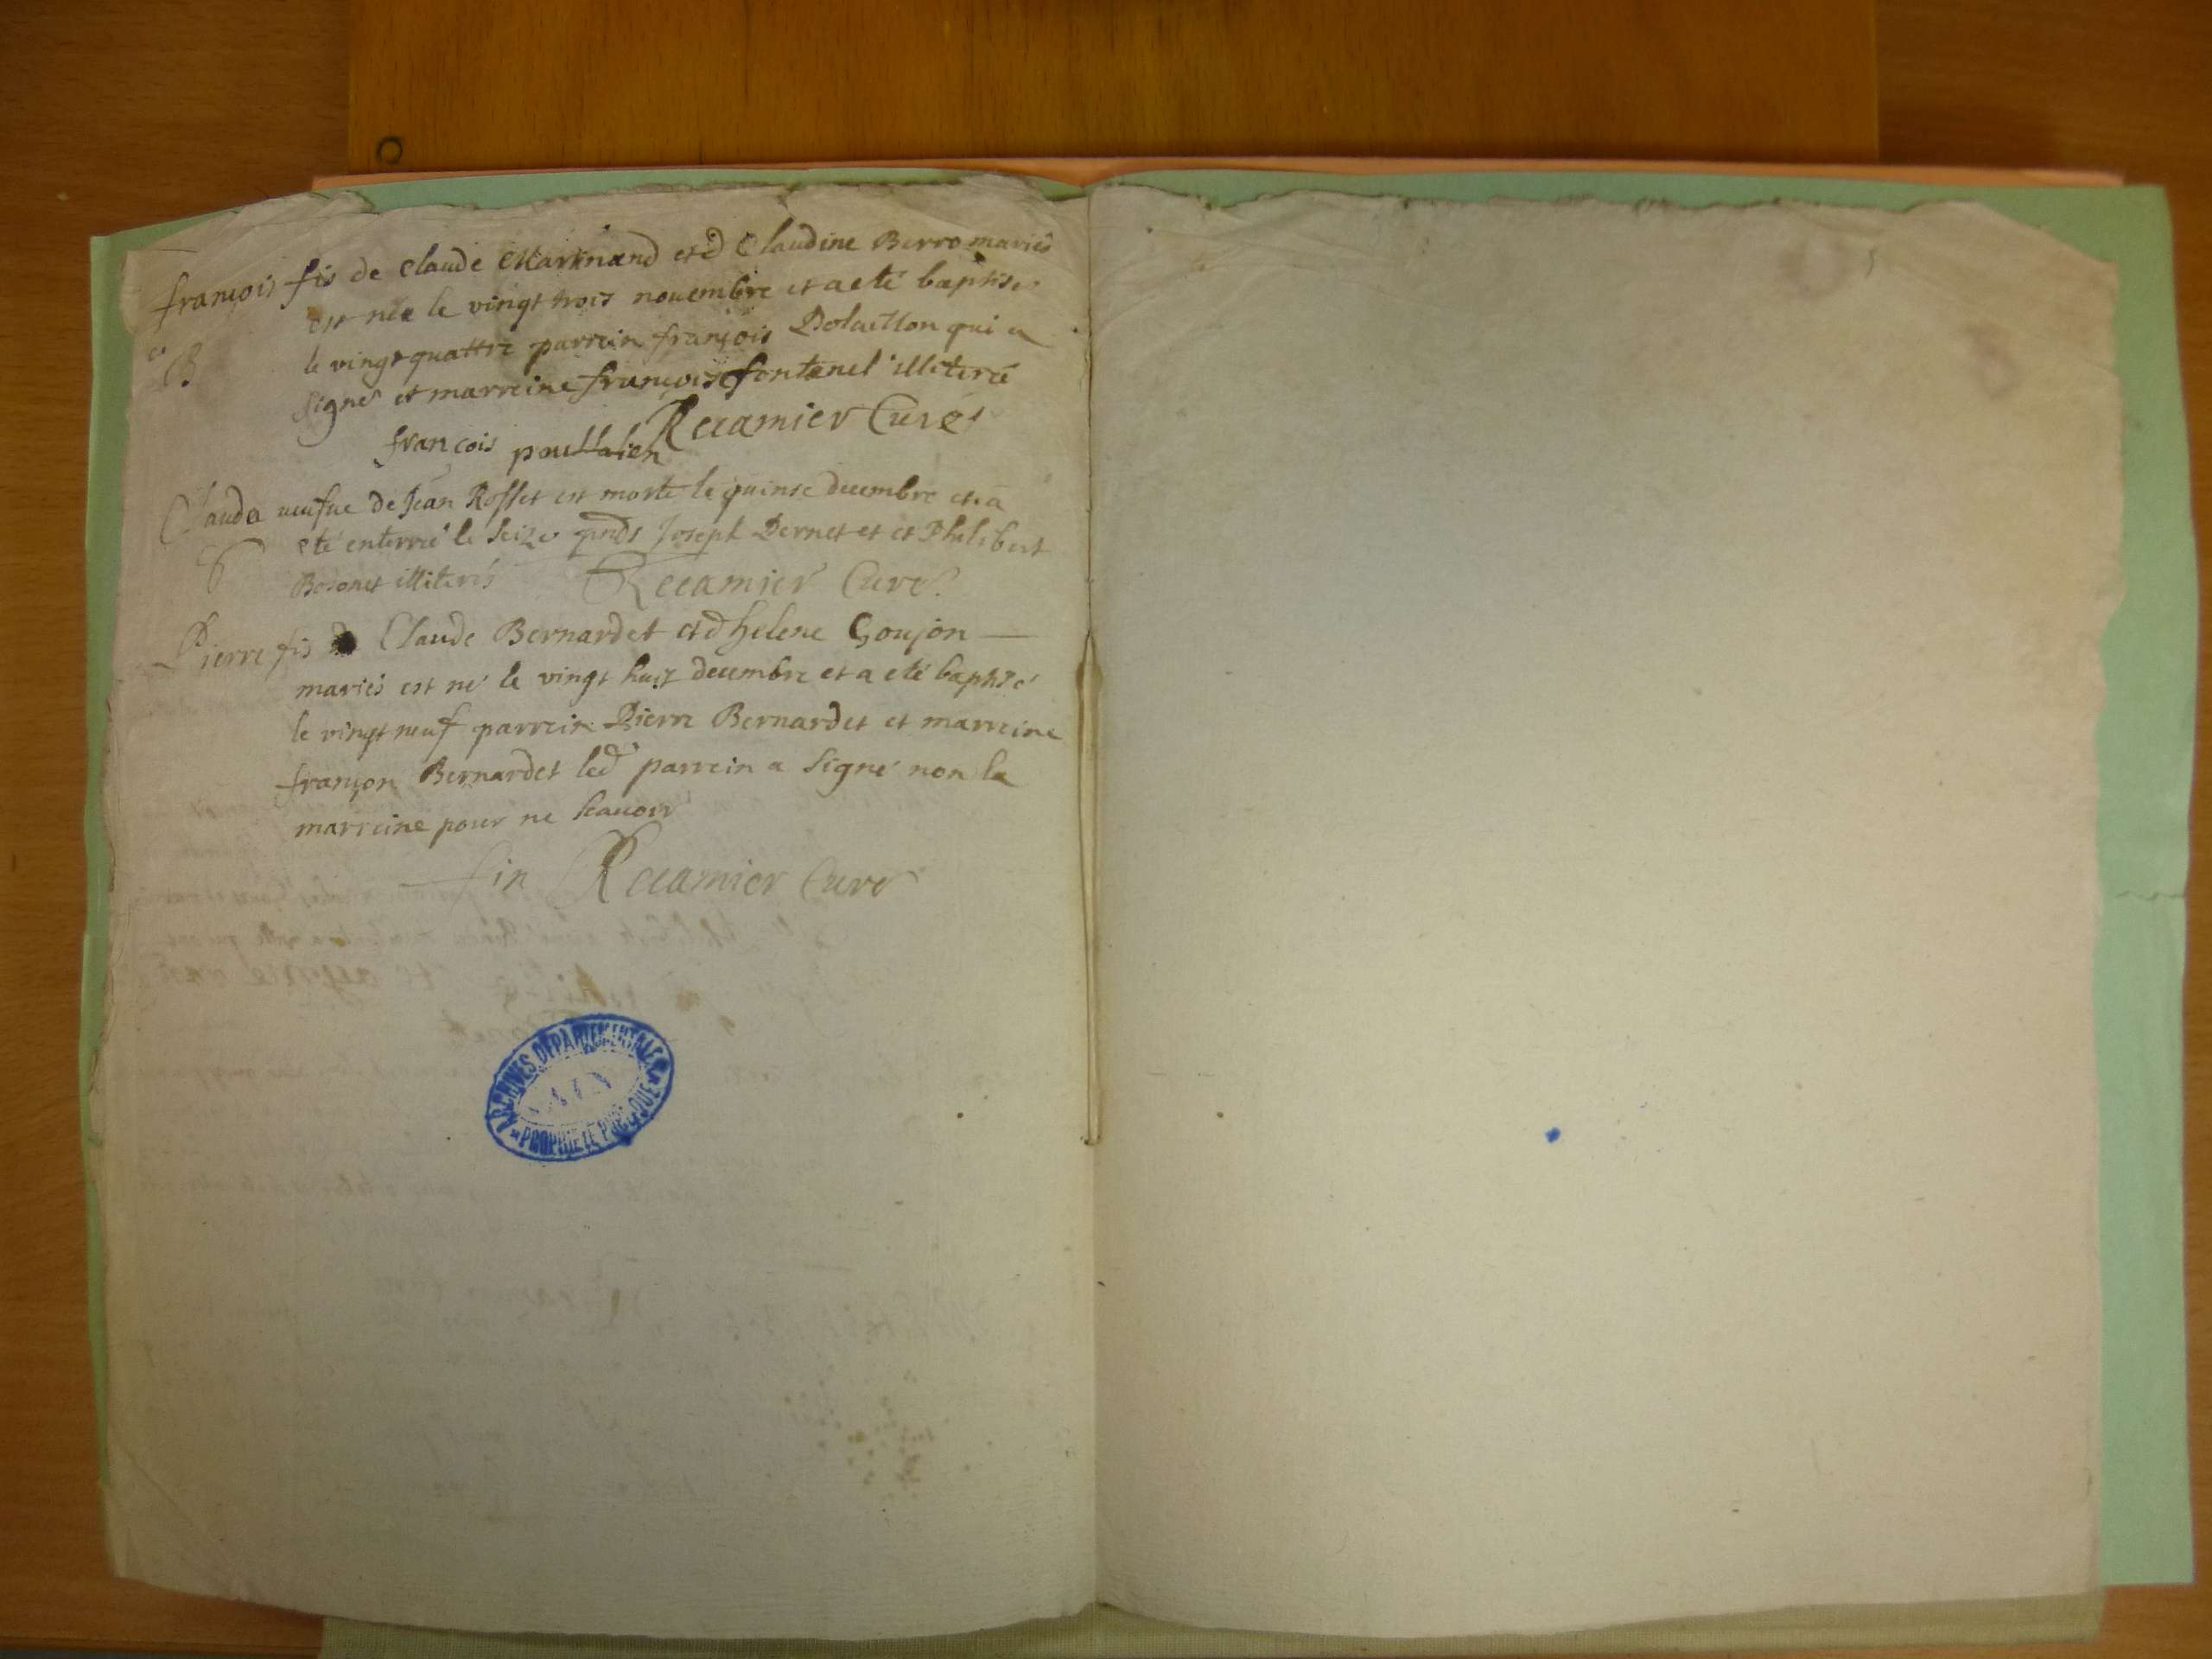 françois fis de Claude Marinand et d Claudine Berro mariés
est née le vingt trois novembre et a eté baptisé
B le vingt quattre parrein françois Polaillon qui a
signé et marreine françoise fontanel illiteré
Recamier Curé
françois poullalien
Clauda veufve de Jean Rosset est morte le quinse decembre et a
eté enterré le seize pnts Joseph Pernet et et Philibert
Bosonet illiterés Recamier Curé
Pierre fis Claude Bernardet et d helene Goujon
mariés est né le vingt huit decembre et a eté baptisé
le vingt neuf parrein Pierre Bernardet et marreine
françon Bernardet led parrein a signé non la
marreine pour ne scavoir
fin Recamier Curé
ARCHIVES DEPARTEMENTALES
AIN
PROPRIETE PUBLIQUE